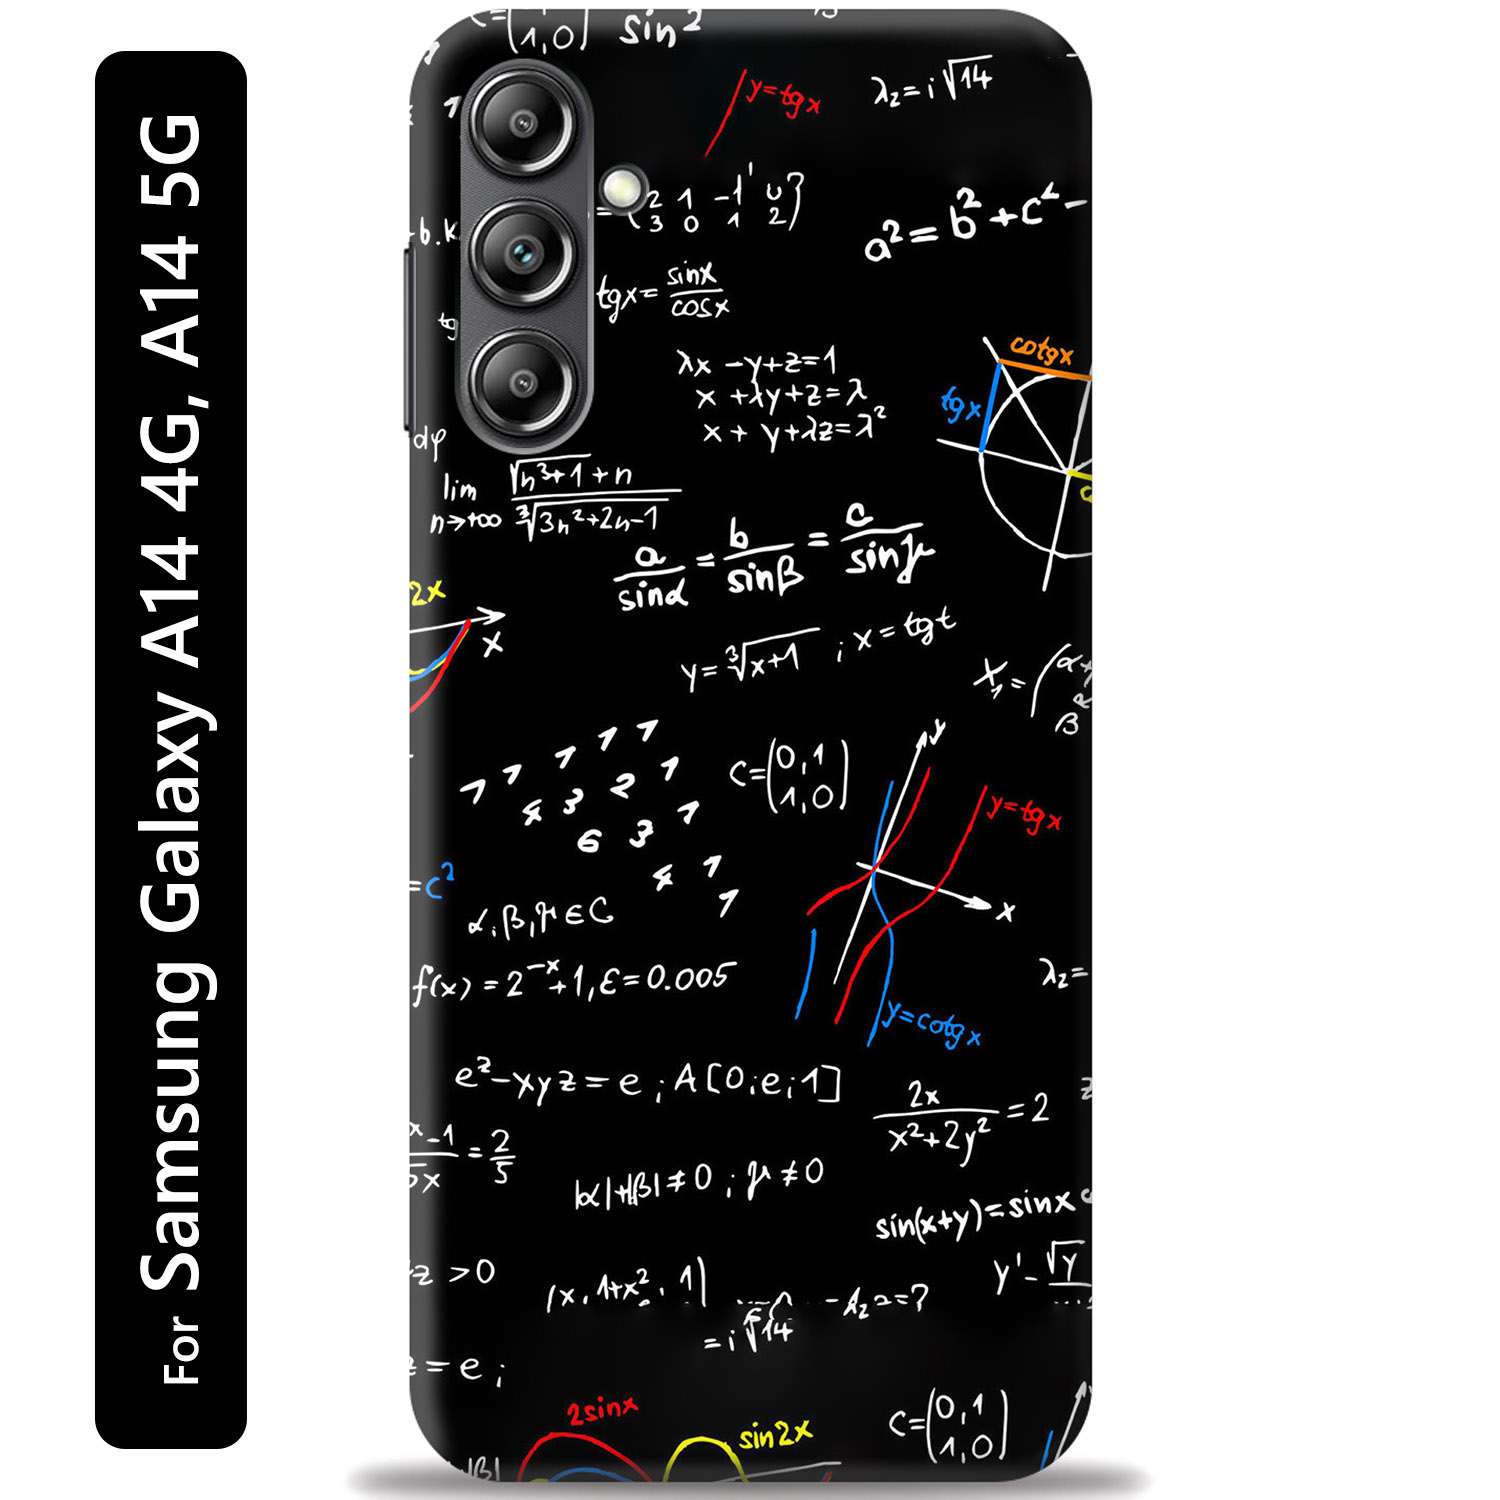 For Samsung Galaxy A14 4G, A14 5G
1,0
sin²
y=tgx
λ₂=i√14
2 1 -1
3 0 1 2
a²=b²+c²-
+b.k
tgx=sinx/cosx
tg
λx -y+z=1
x +λy+z=λ
x + y+λz=λ²
cotgx
tgx
dφ
lim n→+∞ (√n³+1+n)/(∛3n²+2n-1)
a/sinα = b/sinβ = c/sinγ
2x
x
y=∛x+1 ; x=tgt
X₁=
β
1 1 1 1 1
4 3 2 1
6 3 1
4 1
1
C=(0,1
1,0)
y
y=tgx
x
=c²
α,β,γ∈C
f(x)=2⁻ˣ+1,ε=0.005
λ₂=
y=cotgx
eᶻ-xyz=e;A[0;e;1]
2x/(x²+2y²)=2
x-1/5x=2/5
|α|+|β|≠0;γ≠0
sin(x+y)=sinx
z>0
(x,1+x²,1)
y'-√y
-λ₂=?
=i√14
z=e;
2sinx
sin2x
C=(0,1
1,0)
|β|